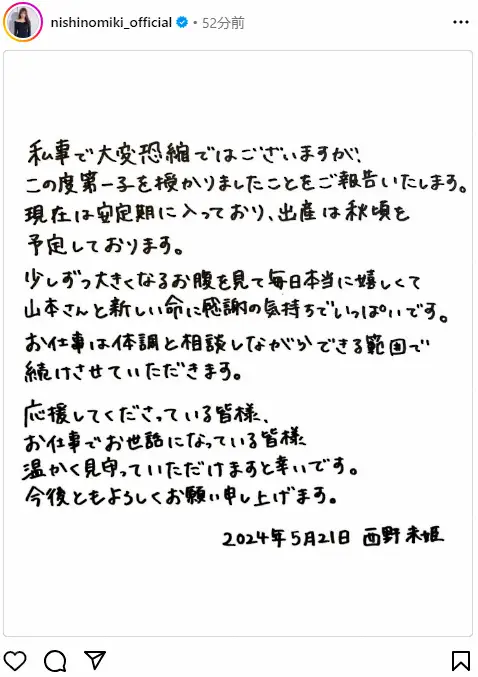 nishinomiki_official • 52分前
私事で大変恐縮ではございますが、
この度第一子を授かりましたことをご報告いたします。
現在は安定期に入っており、出産は秋頃を
予定しております。
少しずつ大きくなるお腹を見て毎日本当に嬉しくて
山本さんと新しい命に感謝の気持ちでいっぱいです。
お仕事は体調と相談しながらできる範囲で
続けさせていただきます。
応援してくださっている皆様、
お仕事でお世話になっている皆様、
温かく見守っていただけますと幸いです。
今後ともよろしくお願い申し上げます。
2024年5月21日 西野未姫